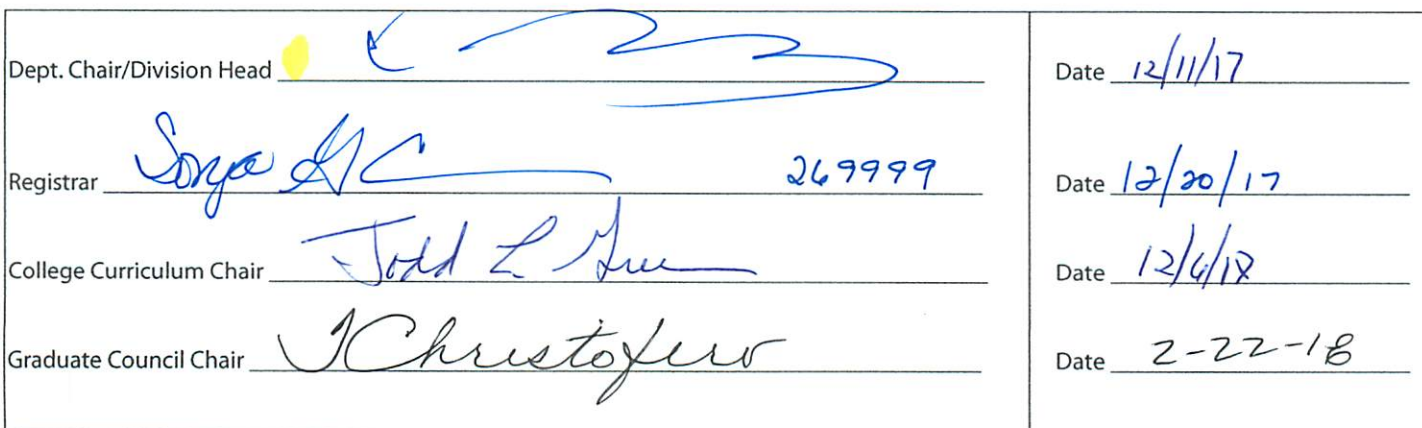 Dept. Chair/Division Head Date 12/11/17
Registrar Sonja G C 269999 Date 12/20/17
College Curriculum Chair Todd L Date
Graduate Council Chair T Christofero Date 2-22-18